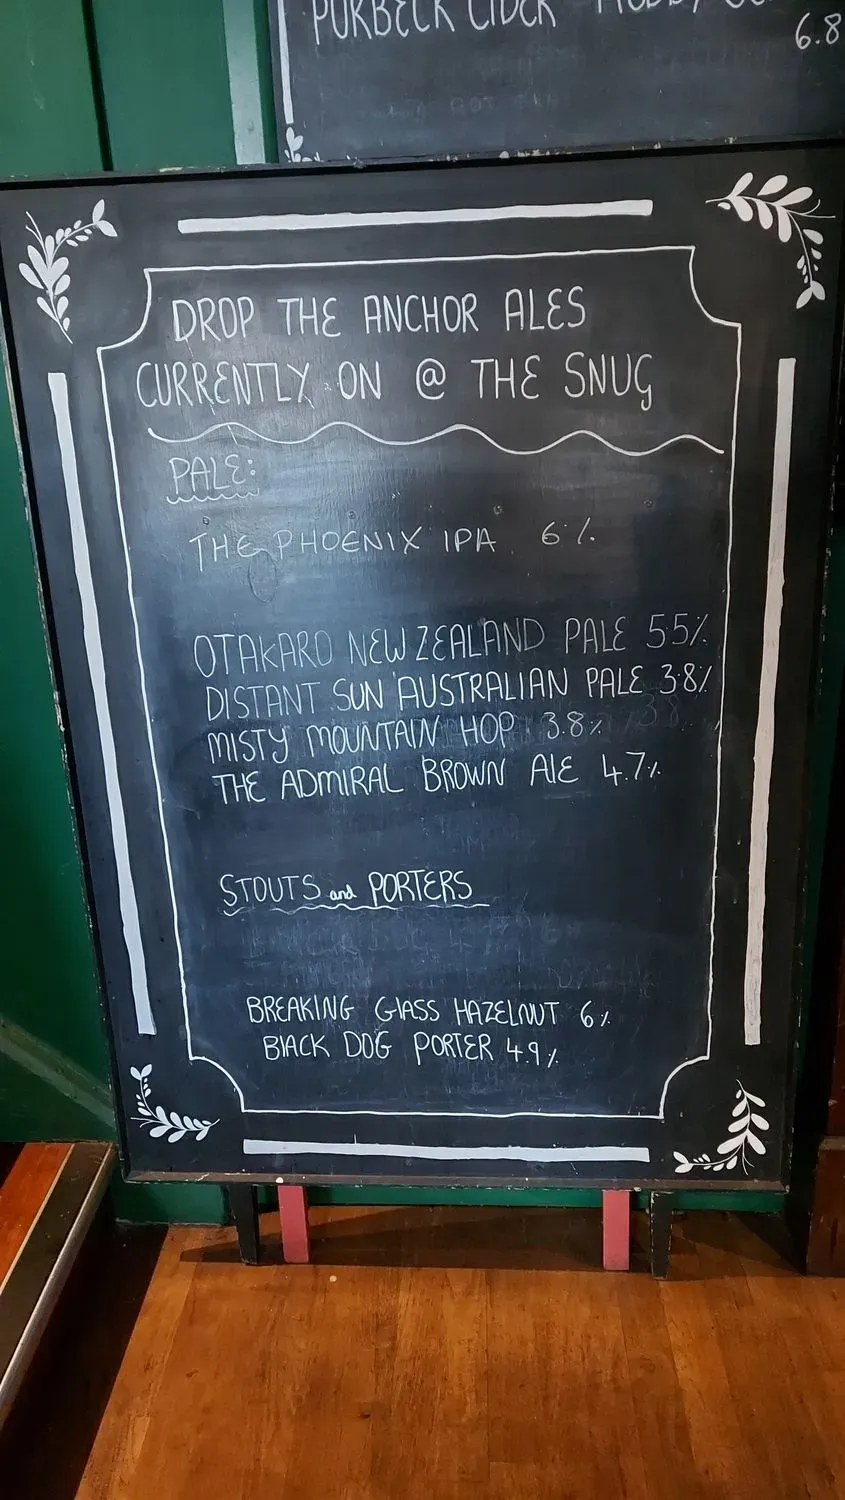 PURBECK CIDER
6.8
DROP THE ANCHOR ALES
CURRENTLY ON @ THE SNUG
PALE:
THE PHOENIX IPA 6%
OTAKARO NEW ZEALAND PALE 5.5%
DISTANT SUN AUSTRALIAN PALE 3.8%
MISTY MOUNTAIN HOP 3.8%
THE ADMIRAL BROWN ALE 4.7%
STOUTS and PORTERS
BREAKING GLASS HAZELNUT 6%
BLACK DOG PORTER 4.9%